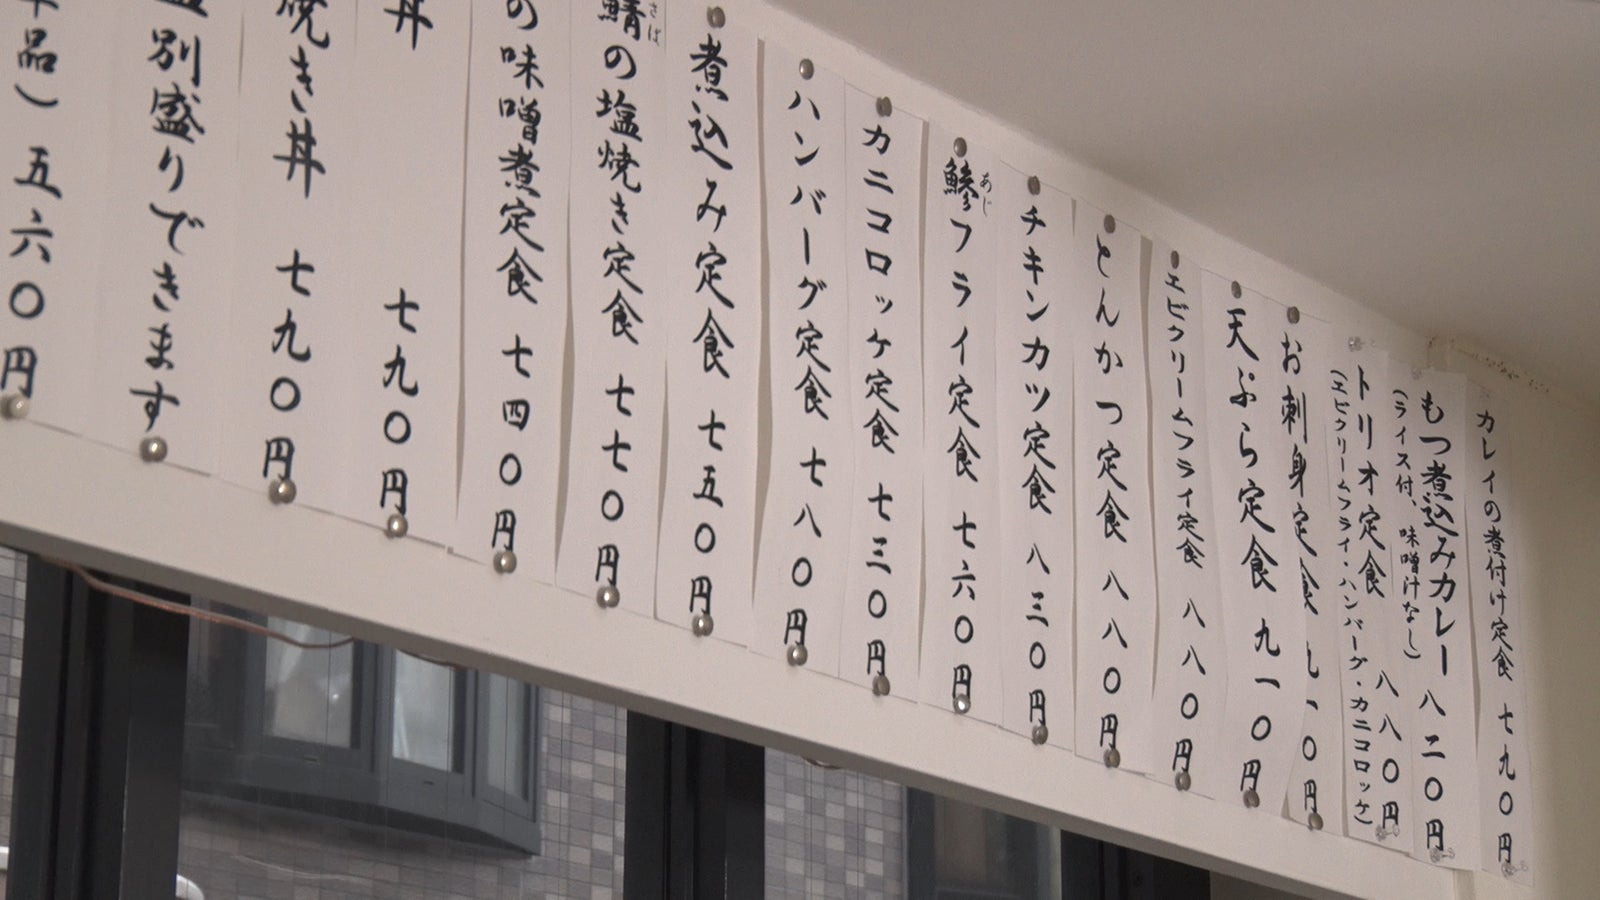 カレイの煮付け定食 七九〇円
もつ煮込みカレー 八二〇円
(ライス付、味噌汁なし)
トリオ定食 八八〇円
(エビクリームフライ・ハンバーグ・カニコロッケ)
お刺身定食 一〇円
天ぷら定食 九一〇円
エビクリームフライ定食 八八〇円
とんかつ定食 八八〇円
チキンカツ定食 八三〇円
鯵フライ定食 七六〇円
あじ
カニコロッケ定食 七三〇円
ハンバーグ定食 七八〇円
煮込み定食 七五〇円
鯖の塩焼き定食 七七〇円
さば
の味噌煮定食 七四〇円
丼 七九〇円
焼き丼 七九〇円
別盛りできます
品) 五六〇円